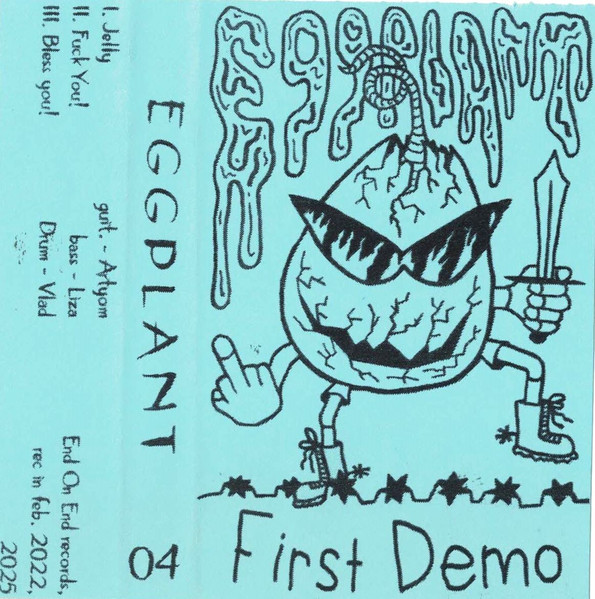 I. Jelly
II. Fuck You!
III. Bless you!
guit. - Artyom
bass - Liza
Drum - Vlad
End On End records,
rec in feb. 2022,
2025
EGGPLANT
04
EGGPLANT
First Demo